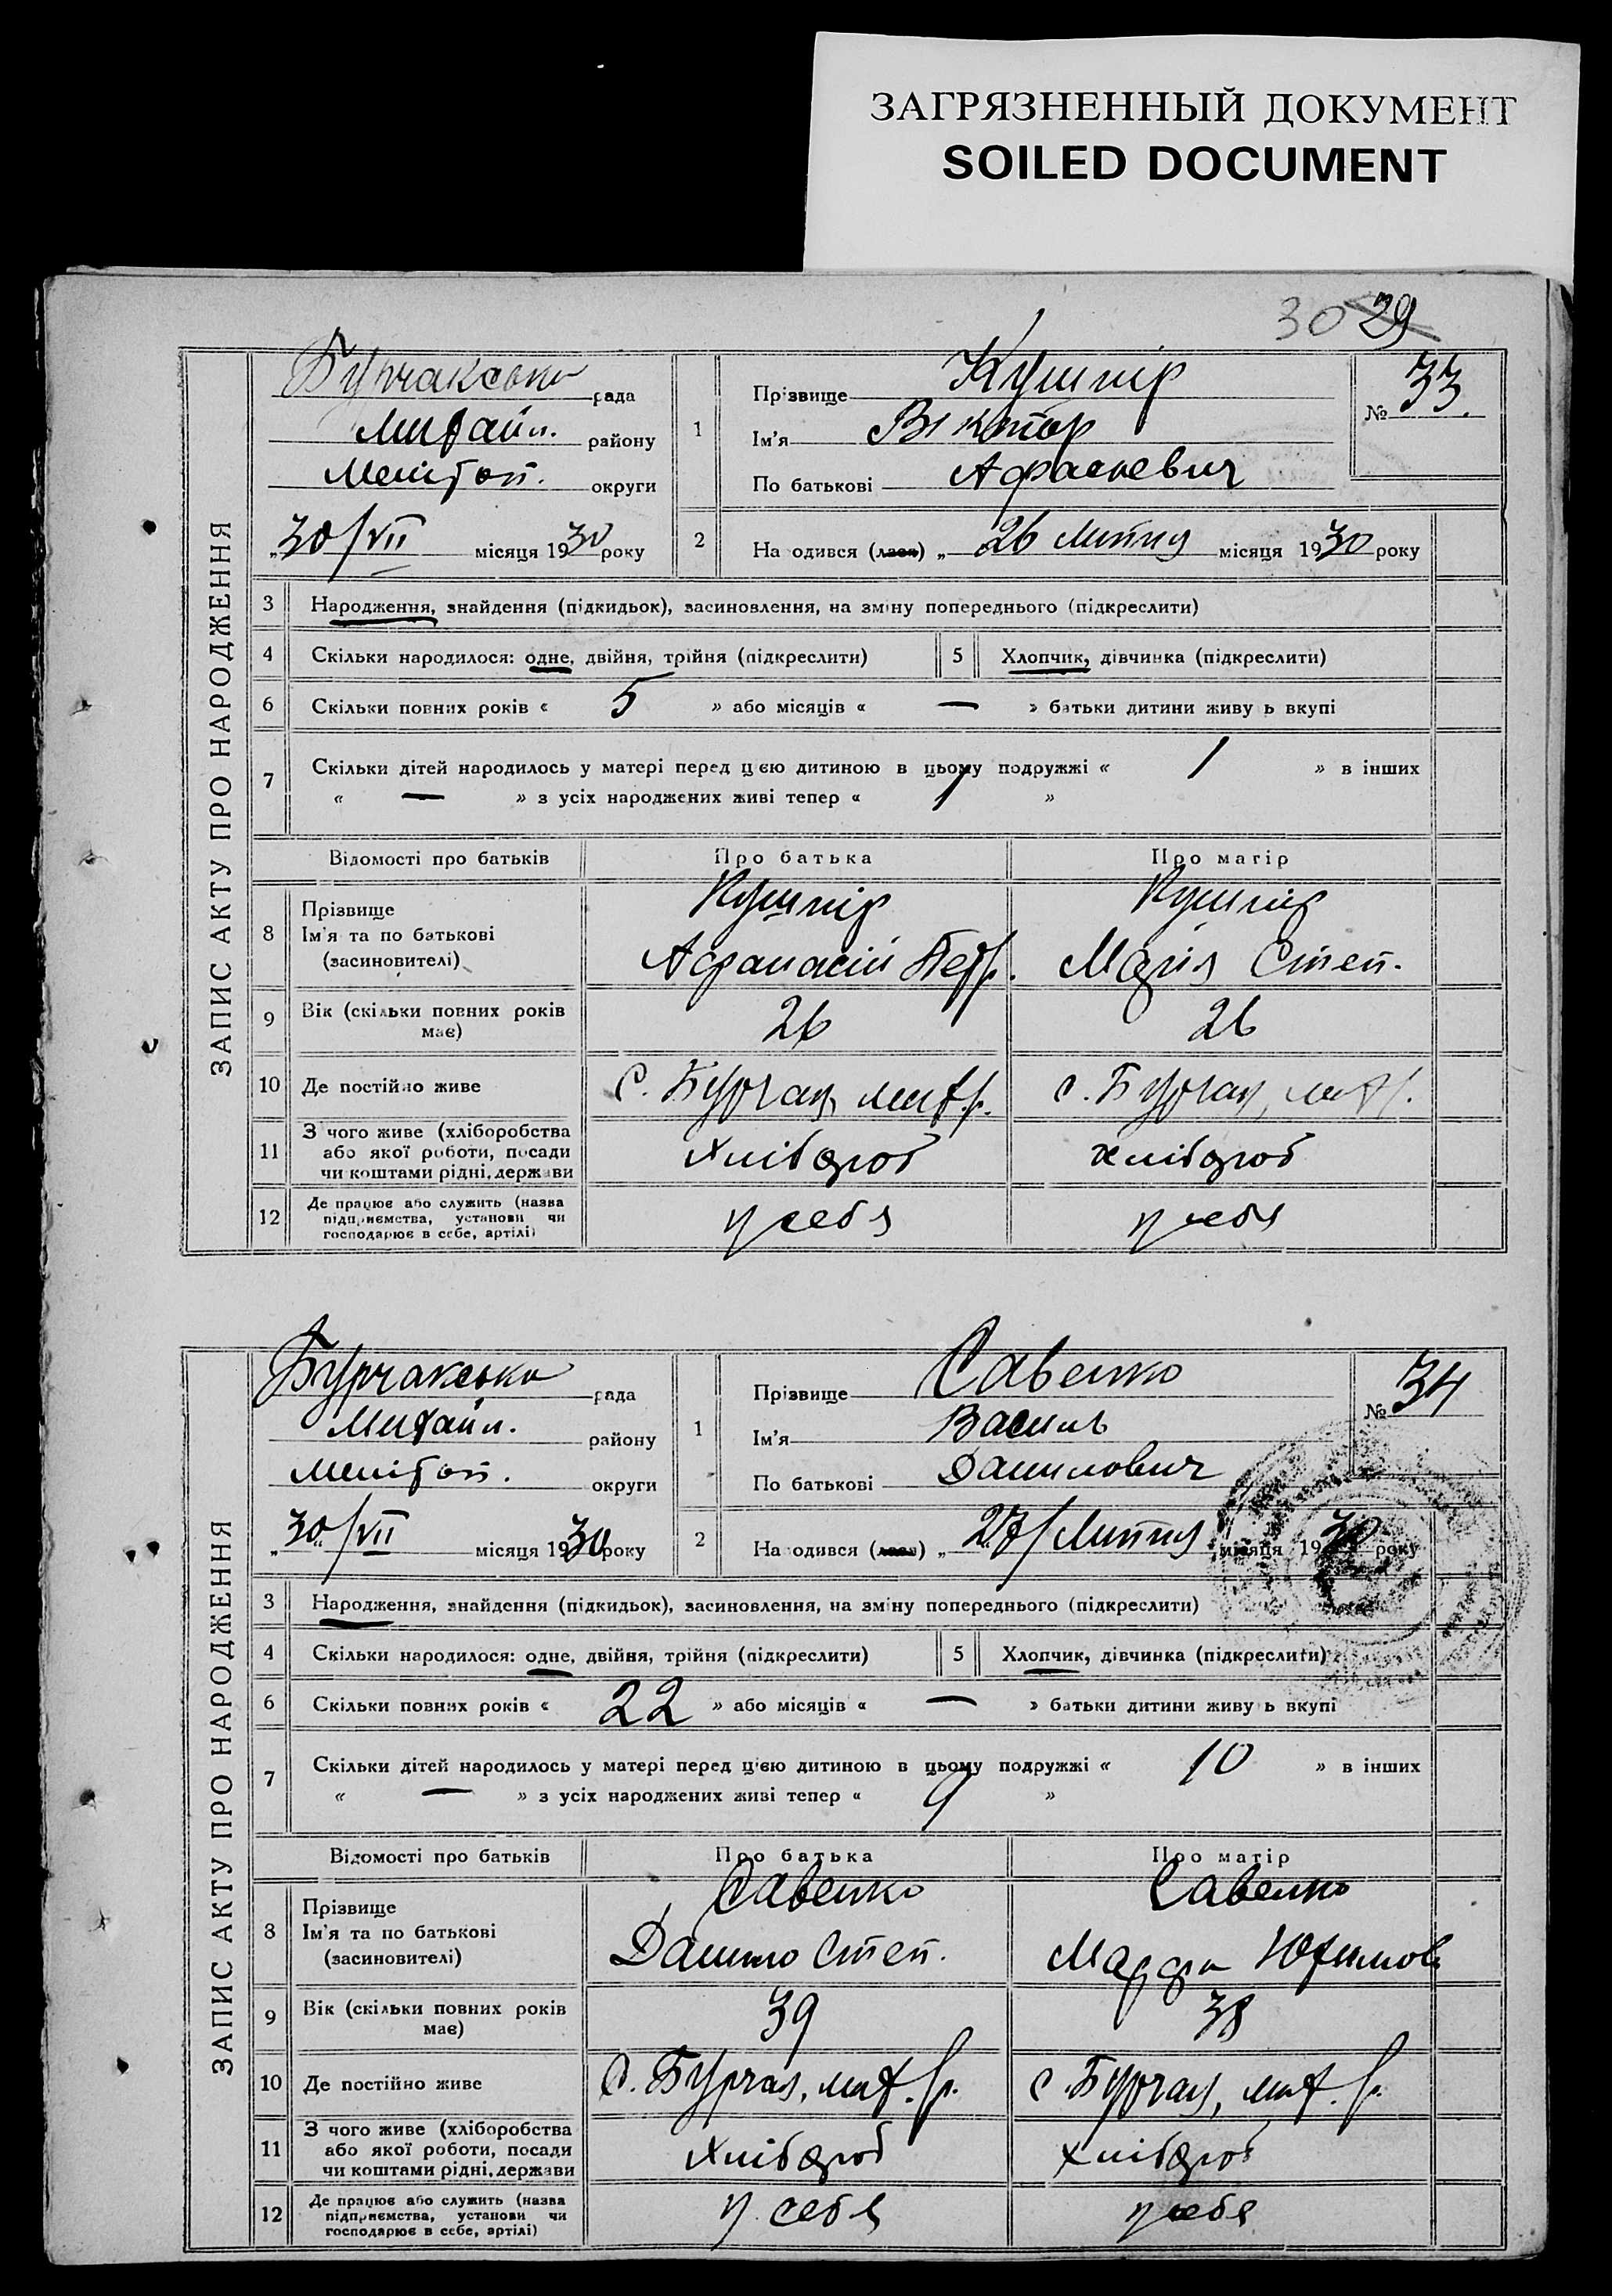 ЗАГРЯЗНЕННЫЙ ДОКУМЕНТ
SOILED DOCUMENT
30 29
ЗАПИС АКТУ ПРО НАРОДЖЕННЯ
Бурчакська рада
Михайл. району
Мелітоп. округи
„30/VII місяця 1930 року
1
Прізвище Кушнір
Ім'я Віктор
По батькові Афанаєвич
№ 33.
2 На одився (лася) „ 26 Липня місяця 1930 року
3 Народження, знайдення (підкидьок), засиновлення, на зміну попереднього (підкреслити)
4 Скільки народилося: одне, двійня, трійня (підкреслити) 5 Хлопчик, дівчинка (підкреслити)
6 Скільки повних років « 5 » або місяців « — » батьки дитини живу ь вкупі
7 Скільки дітей народилось у матері перед цією дитиною в цьому подружжі « 1 » в інших
« — » з усіх народжених живі тепер « 1 »
Відомості про батьків Про батька Про матір
8 Прізвище Кушнір Кушнір
Ім'я та по батькові
(засиновителі) Афанасій Петр. Марія Степ.
9 Вік (скільки повних років має) 26 26
10 Де постійно живе С. Бурчак, мих.р. с. Бурчак, мих.р.
11 З чого живе (хліборобства
або якої роботи, посади хлібороб хлібороб
чи коштами рідні, держави
12 Де працює або служить (назва
підприємства, установи чи у себя у себя
господарює в себе, артілі)
ЗАПИС АКТУ ПРО НАРОДЖЕННЯ
Бурчакська рада
Михайл. району
Мелітоп. округи
„30/VII місяця 1930 року
1
Прізвище Савенко
Ім'я Василь
По батькові Данилович
№ 34
2 На одився (лася) „ 27/Липня місяця 1930 року
3 Народження, знайдення (підкидьок), засиновлення, на зміну попереднього (підкреслити)
4 Скільки народилося: одне, двійня, трійня (підкреслити) 5 Хлопчик, дівчинка (підкреслити)
6 Скільки повних років « 22 » або місяців « — » батьки дитини живу ь вкупі
7 Скільки дітей народилось у матері перед цією дитиною в цьому подружжі « 10 » в інших
« — » з усіх народжених живі тепер « 9 »
Відомості про батьків Про батька Про матір
8 Прізвище Савенко Савенко
Ім'я та по батькові
(засиновителі) Данило Степ. Марфа Юхимов
9 Вік (скільки повних років має) 39 38
10 Де постійно живе С. Бурчак, мих. р. с. Бурчак, мих. р.
11 З чого живе (хліборобства
або якої роботи, посади хлібороб хлібороб
чи коштами рідні, держави
12 Де працює або служить (назва
підприємства, установи чи у себя у себя
господарює в себе, артілі)